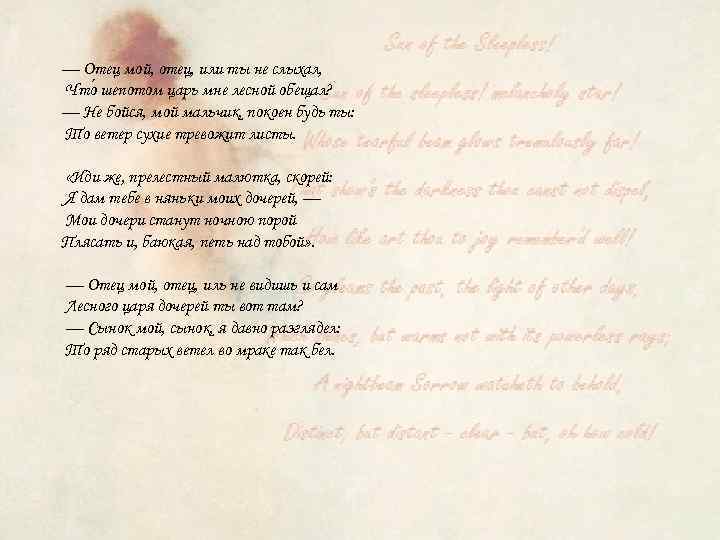 — Отец мой, отец, или ты не слыхал,
Что́ шепотом царь мне лесной обещал?
— Не бойся, мой мальчик, покоен будь ты:
То ветер сухие тревожит листы.
«Иди же, прелестный малютка, скорей:
Я дам тебе в няньки моих дочерей, —
Мои дочери станут ночною порой
Плясать и, баюкая, петь над тобой».
— Отец мой, отец, иль не видишь и сам
Лесного царя дочерей ты вот там?
— Сынок мой, сынок, я давно разглядел:
То ряд старых ветел во мраке так бел.
Sun of the Sleepless!
Sun of the sleepless! melancholy star!
Whose tearful beam glows tremulously far!
show'st the darkness thou canst not dispel,
How like art thou to joy remember'd well!
gleams the past, the light of other days,
shines, but warms not with its powerless rays;
A nightbeam Sorrow watcheth to behold,
Distinct, but distant – clear – but, oh how cold!